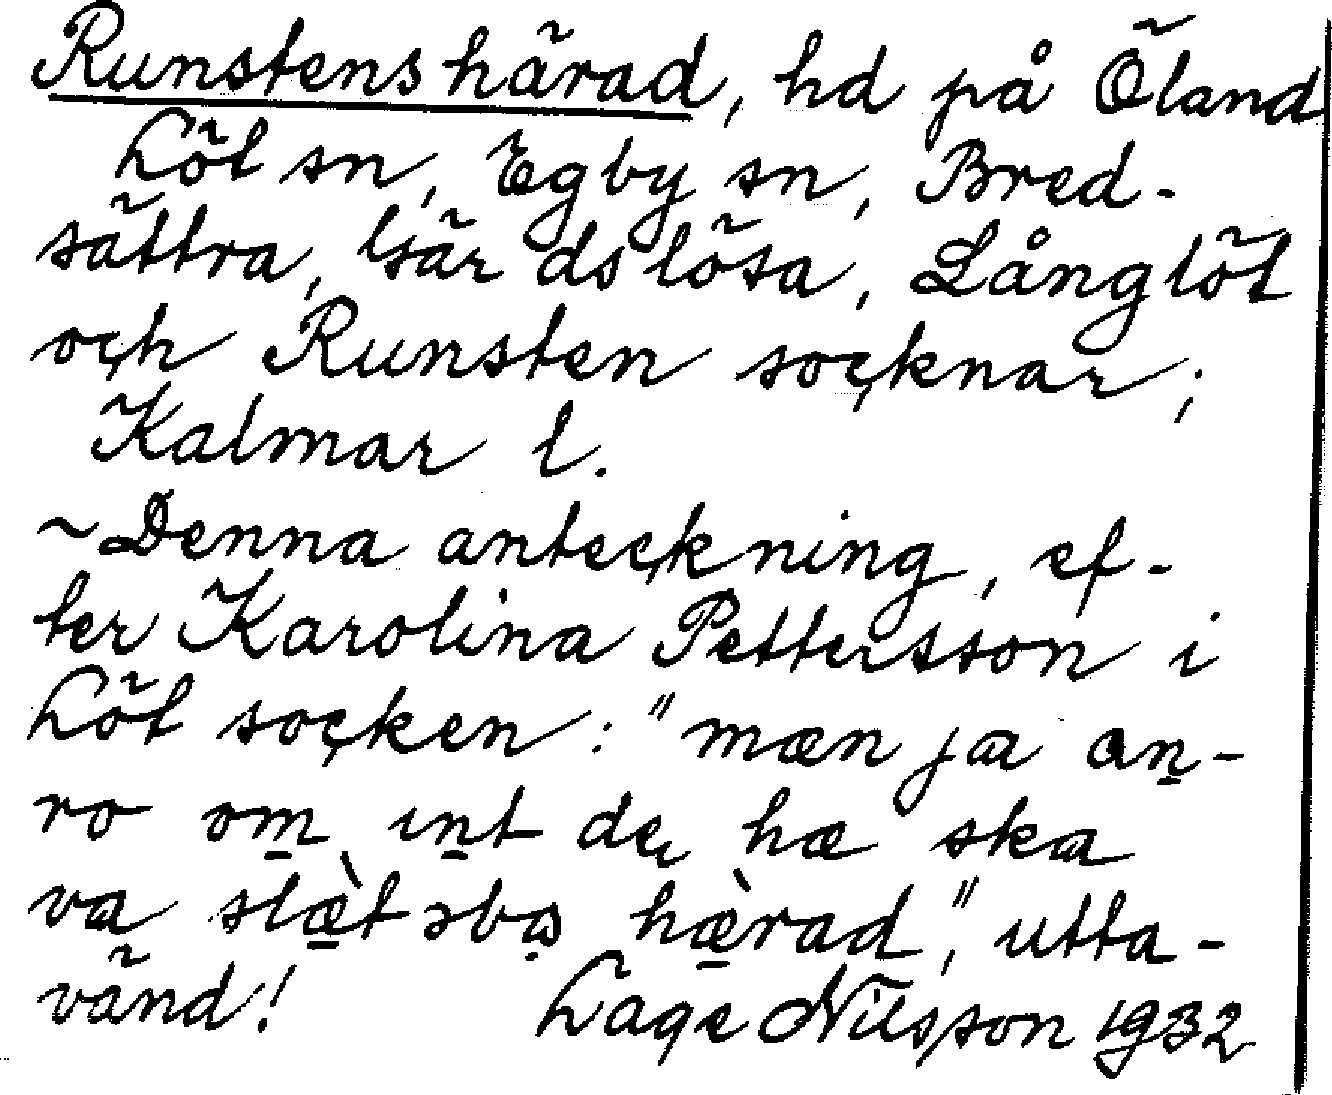 Runstens härad, hd på Öland
Löt sn, Egby sn, Bred-
sättra, Gärdslösa, Långlöt
och Runsten socknar;
Kalmar l.
~Denna anteckning, ef-
ter Karolina Pettersson i
Löt socken: "mæn ja an̲-
ro om̲ ɩn̲t de hæ ska
va slæ̲̀t əba hæ̲̀rad," utta-
vänd! Lage Nilsson 1932